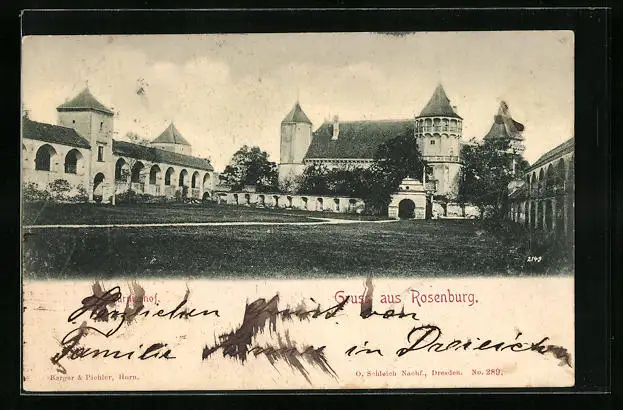 2149
Gruss aus Rosenburg.
Herzlichen Gruß von
Familie in
Karger & Pichler, Horn.
O. Schleich Nachf., Dresden. No. 289.